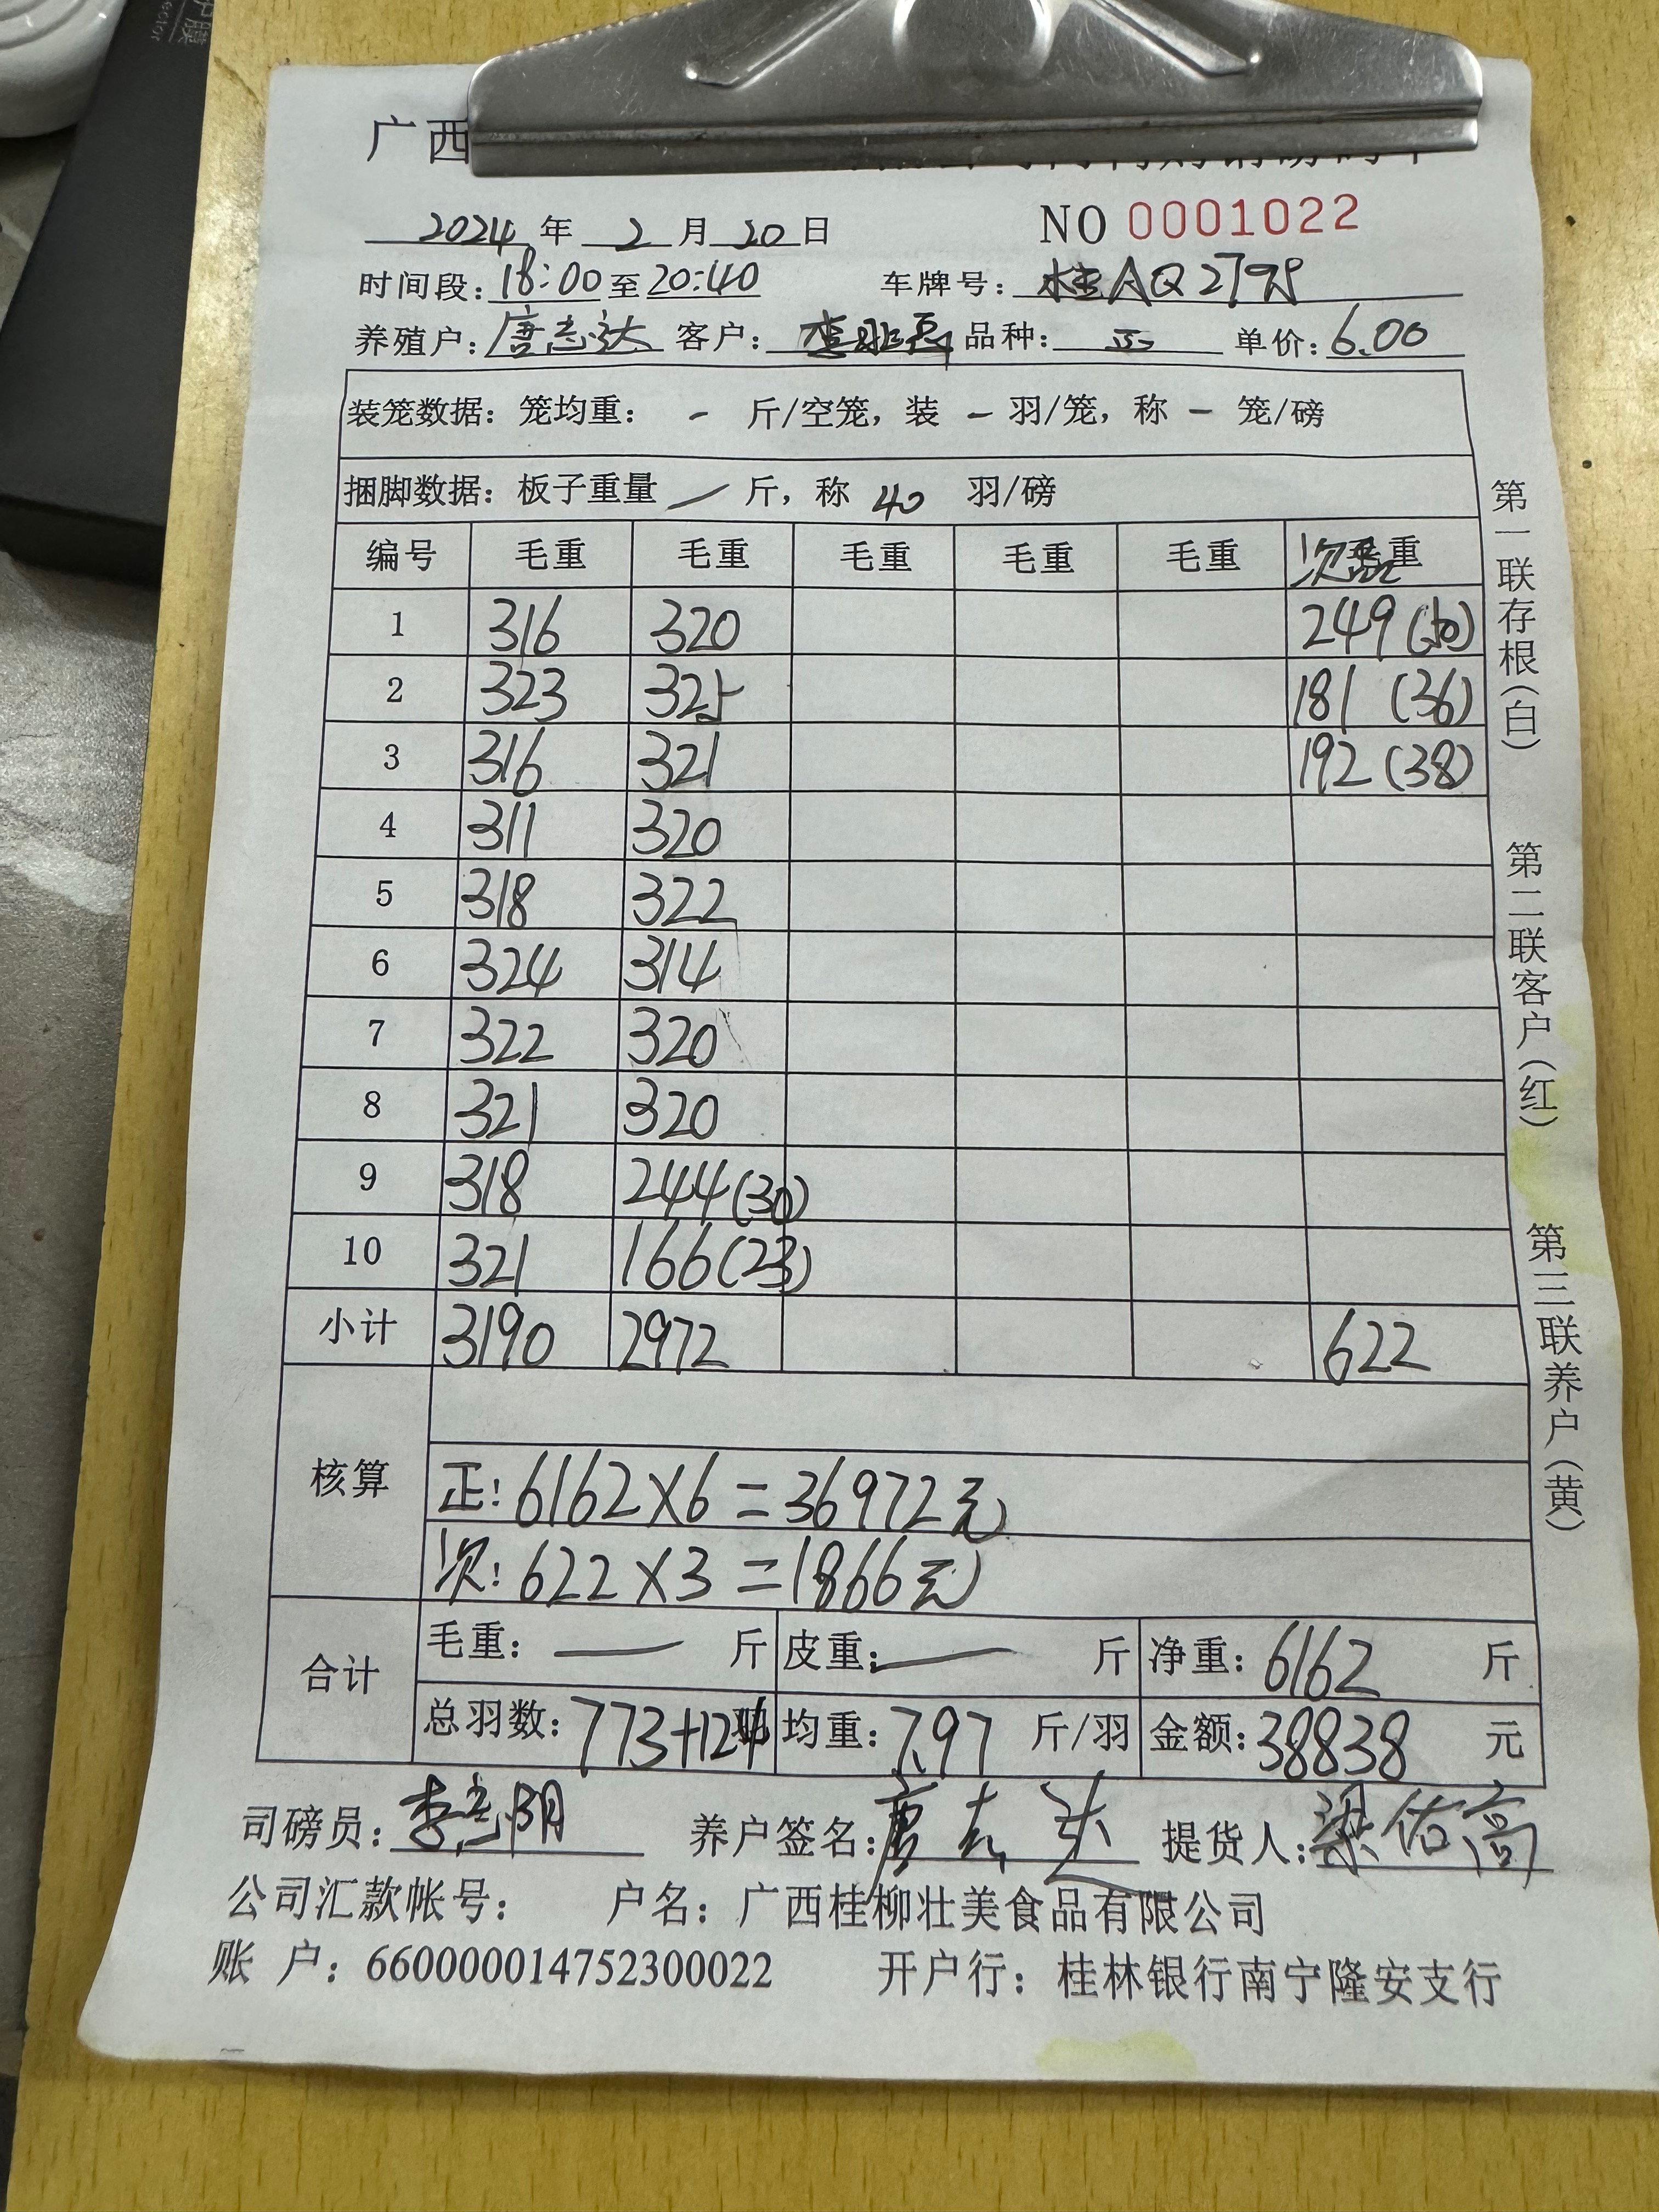 广西
2024 年 2 月 20 日 NO 0001022
时间段：18:00 至 20:40 车牌号：桂AQ279P
养殖户：唐志达 客户： 品种：正 单价：6.00
装笼数据：笼均重： - 斤/空笼，装 - 羽/笼，称 - 笼/磅
捆脚数据：板子重量 / 斤，称 40 羽/磅
编号 毛重 毛重 毛重 毛重 毛重 次品重
1 316 320 249(50)
2 323 325 181 (36)
3 316 321 192 (38)
4 311 320
5 318 322
6 324 314
7 322 320
8 321 320
9 318 244(30)
10 321 166(23)
小计 3190 2972 622
核算
正：6162×6=36972元
次：622×3=1866元
合计 毛重：— 斤 皮重：— 斤 净重：6162 斤
总羽数：773+124 均重：7.97 斤/羽 金额：38838 元
司磅员：李志阴 养户签名：唐志达 提货人：梁佑高
公司汇款帐号： 户名：广西桂柳壮美食品有限公司
账 户：660000014752300022 开户行：桂林银行南宁隆安支行
第一联存根（白） 第二联客户（红） 第三联养户（黄）